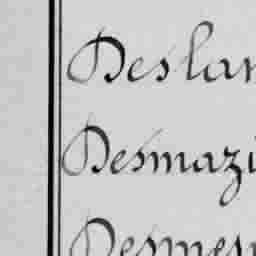 Deslan
Desmazi
Desmesn